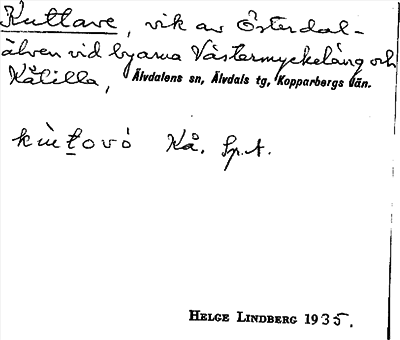 Kuttave, vik av Österdal-
älven vid byarna Västermyckeläng och
Kåtilla, Älvdalens sn, Älvdals tg, Kopparbergs län.
kùtovò Kå. Sp.A.
HELGE LINDBERG 1935.